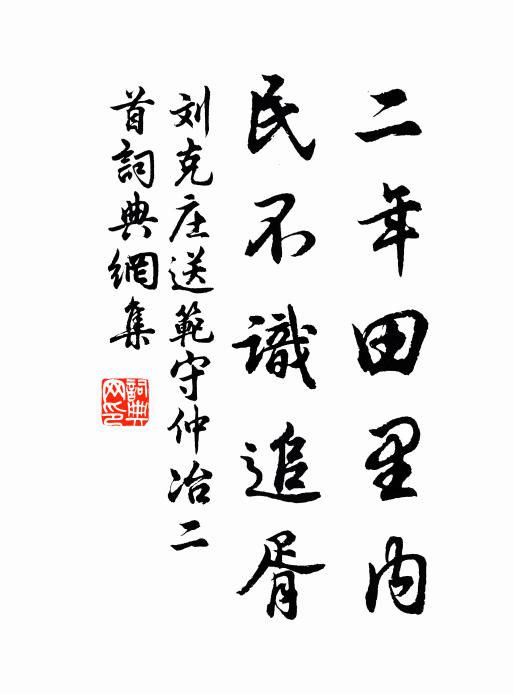 二年田里内
民不識追胥
刘克庄送範守仲冶二
首詞典網集
詞典
网印